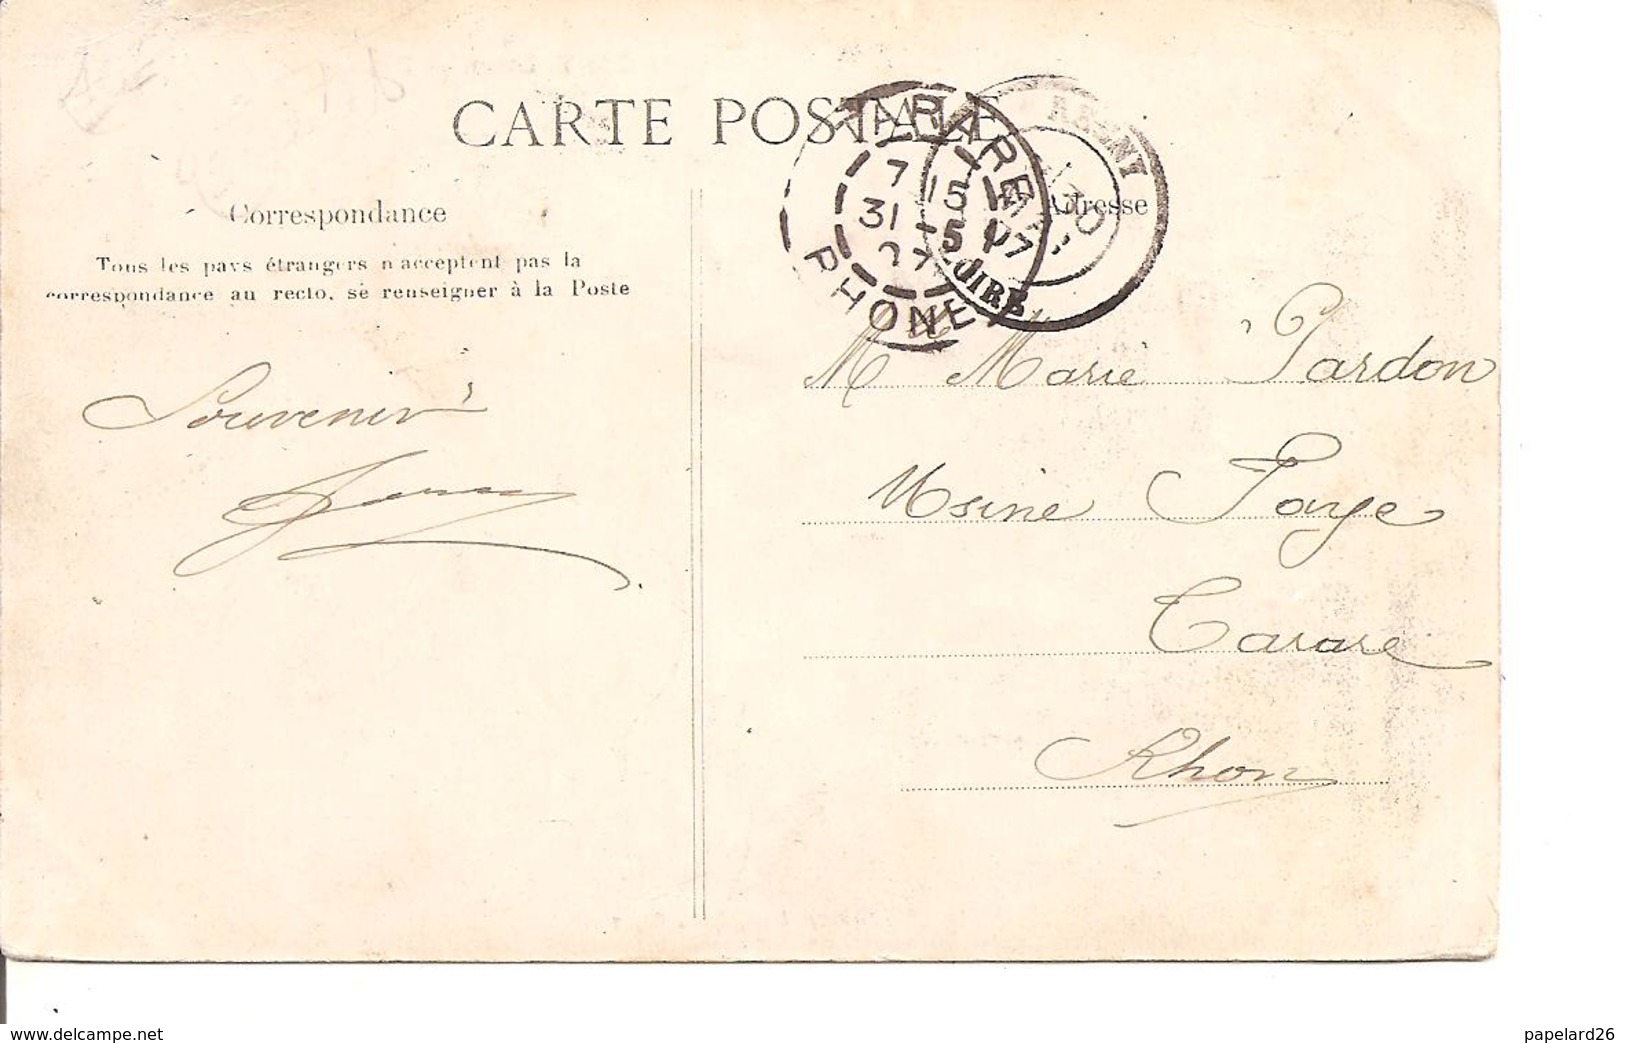 CARTE POSTALE
Correspondance
Tous les pays étrangers n'acceptent pas la
correspondance au recto, se renseigner à la Poste
Adresse
TARARE
7 15
31 -5
07
RHONE
LOIRE
Souvenir
M Marie Pardon
Usine Faye
Tarare
Rhon
www.delcampe.net
papelard26